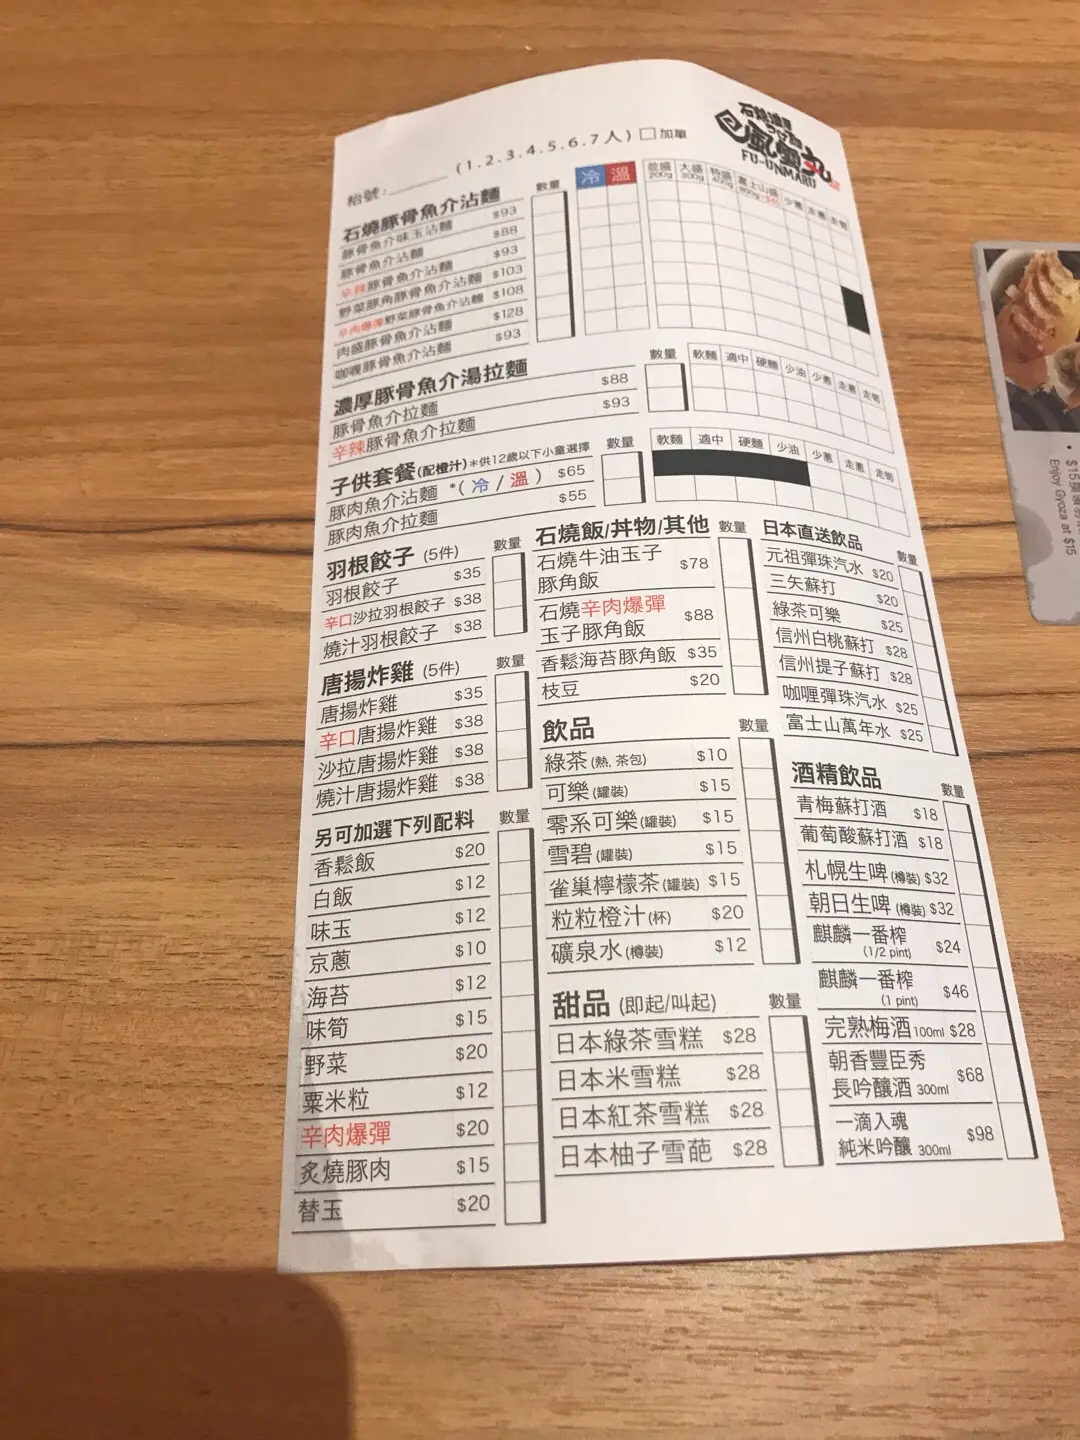 石燒濃厚
つけ麵
風雲丸
FU-UNMARU
枱號:______ (1.2.3.4.5.6.7人) □加單
石燒豚骨魚介沾麵 數量 冷 溫 並盛 200g 大盛 300g 特盛 400g 富士山盛 800g 少蔥 走蔥 走筍
豚骨魚介味玉沾麵 $93
豚骨魚介沾麵 $88
辛辣豚骨魚介沾麵 $93
野菜豚角豚骨魚介沾麵 $103
辛肉爆彈野菜豚骨魚介沾麵 $108
肉盛豚骨魚介沾麵 $128
咖喱豚骨魚介沾麵 $93
濃厚豚骨魚介湯拉麵 數量 軟麵 適中 硬麵 少油 少蔥 走蔥 走筍
豚骨魚介拉麵 $88
辛辣豚骨魚介拉麵 $93
子供套餐(配橙汁)*供12歲以下小童選擇 數量 軟麵 適中 硬麵 少油 少蔥 走蔥 走筍
豚肉魚介沾麵 *(冷/溫) $65
豚肉魚介拉麵 $55
羽根餃子 (5件) 數量
羽根餃子 $35
辛口沙拉羽根餃子 $38
燒汁羽根餃子 $38
唐揚炸雞 (5件) 數量
唐揚炸雞 $35
辛口唐揚炸雞 $38
沙拉唐揚炸雞 $38
燒汁唐揚炸雞 $38
另可加選下列配料 數量
香鬆飯 $20
白飯 $12
味玉 $12
京蔥 $10
海苔 $12
味筍 $15
野菜 $20
粟米粒 $12
辛肉爆彈 $20
炙燒豚肉 $15
替玉 $20
石燒飯/丼物/其他 數量
石燒牛油玉子
豚角飯 $78
石燒辛肉爆彈
玉子豚角飯 $88
香鬆海苔豚角飯 $35
枝豆 $20
飲品 數量
綠茶(熱, 茶包) $10
可樂(罐裝) $15
零系可樂(罐裝) $15
雪碧(罐裝) $15
雀巢檸檬茶(罐裝) $15
粒粒橙汁(杯) $20
礦泉水(樽裝) $12
甜品 (即起/叫起) 數量
日本綠茶雪糕 $28
日本米雪糕 $28
日本紅茶雪糕 $28
日本柚子雪葩 $28
日本直送飲品 數量
元祖彈珠汽水 $20
三矢蘇打 $20
綠茶可樂 $25
信州白桃蘇打 $28
信州提子蘇打 $28
咖喱彈珠汽水 $25
富士山萬年水 $25
酒精飲品 數量
青梅蘇打酒 $18
葡萄酸蘇打酒 $18
札幌生啤(樽裝) $32
朝日生啤(樽裝) $32
麒麟一番榨
(1/2 pint) $24
麒麟一番榨
(1 pint) $46
完熟梅酒100ml $28
朝香豐臣秀
長吟釀酒 300ml $68
一滴入魂
純米吟釀 300ml $98
Enjoy Gyoza at $15